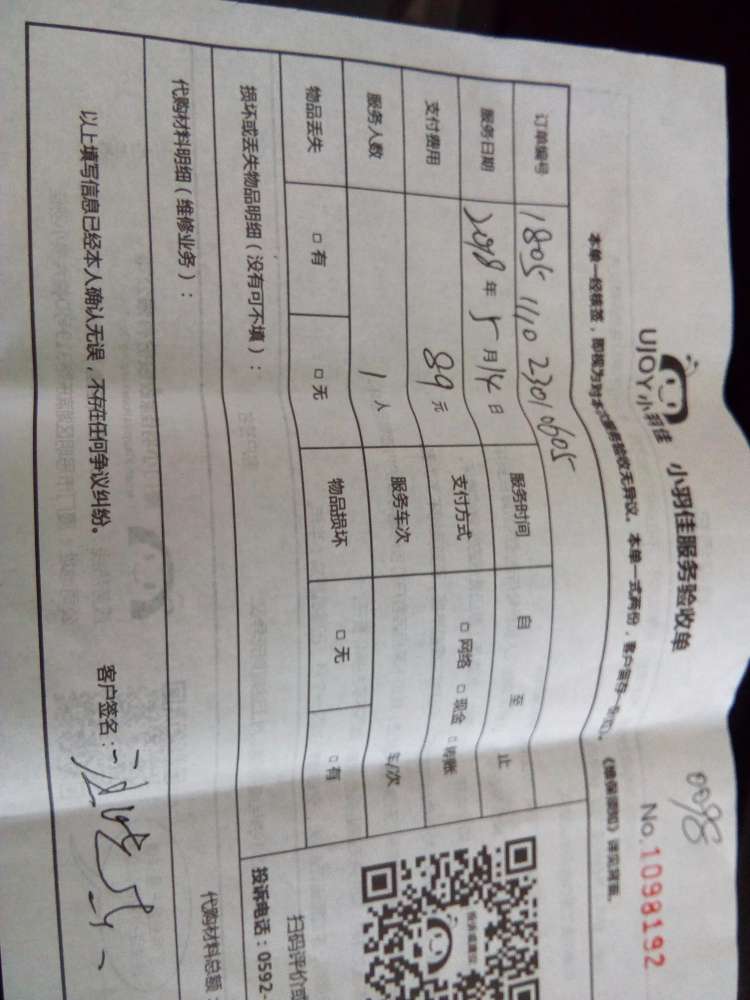 0098
UJOY小羽佳 小羽佳服务验收单 No.1098192
本单一经核签，即视为对本次服务验收无异议。本单一式两份，客户留存一份。《维保须知》详见背面。
订单编号 1805 1110 23010605
服务日期 2018年5月14日 服务时间 自 至 止
支付费用 89元 支付方式 □网络 □现金 □转账
服务人数 1人 服务车次 车/次
物品丢失 □有 □无 物品损坏 □无 □有
损坏或丢失物品明细（没有可不填）：
扫码评价或
投诉电话：0592-
代购材料明细（维修业务）： 代购材料总额
以上填写信息已经本人确认无误，不存在任何争议纠纷。 客户签名：